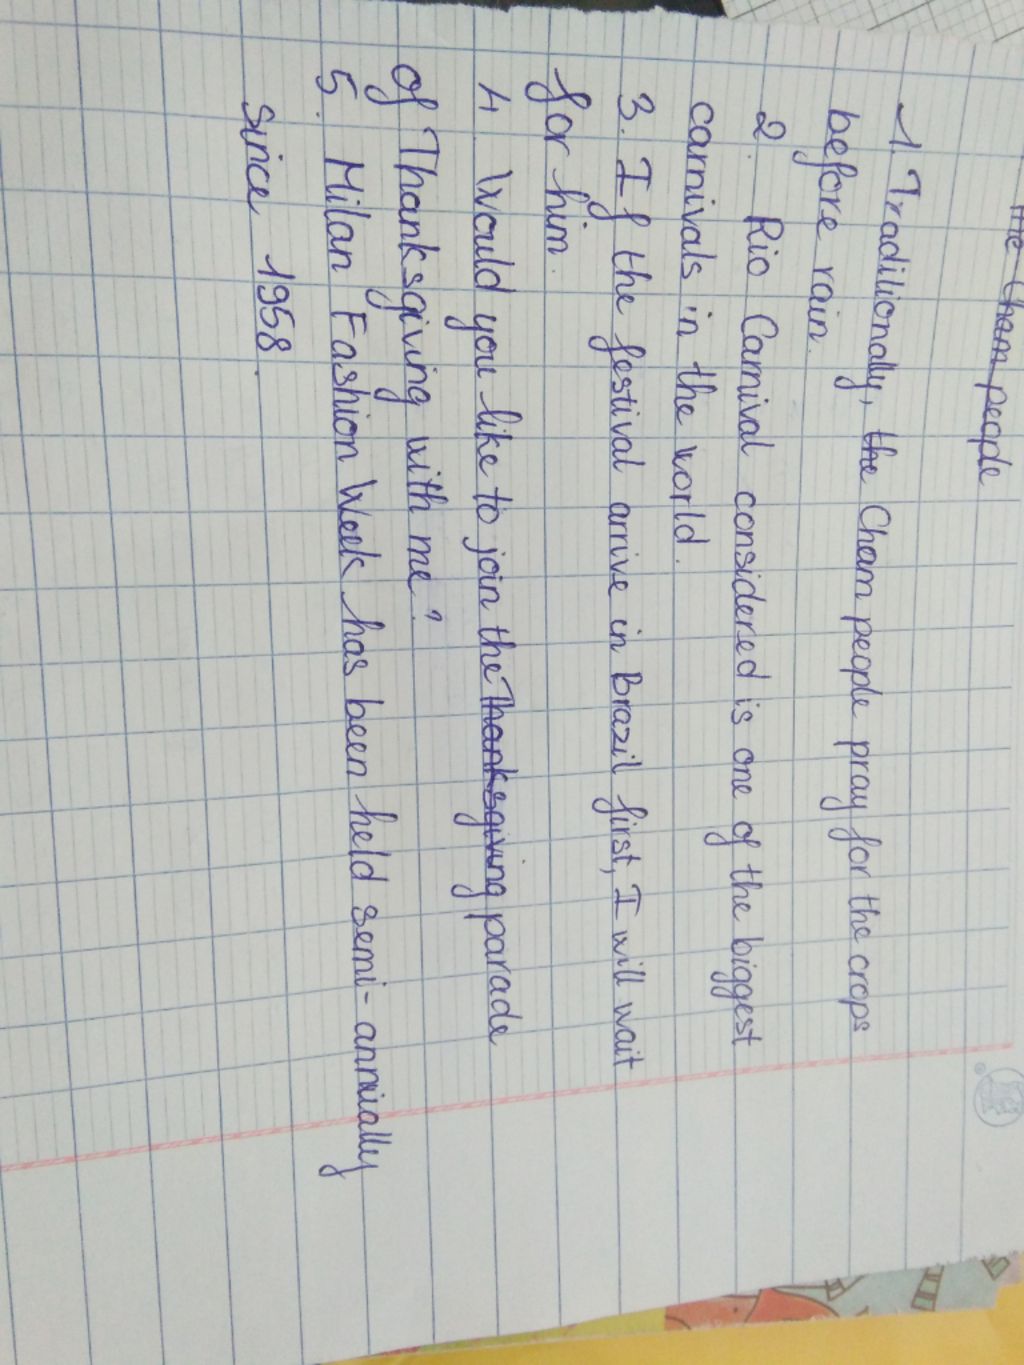 the Cham people
1. Traditionally, the Cham people pray for the crops
before rain.
2. Rio Carnival considered is one of the biggest
carnivals in the world.
3. If the festival arrive in Brazil first, I will wait
for him.
4. Would you like to join the Thanksgiving parade
of Thanksgiving with me?
5. Milan Fashion Week has been held semi-annually
since 1958.